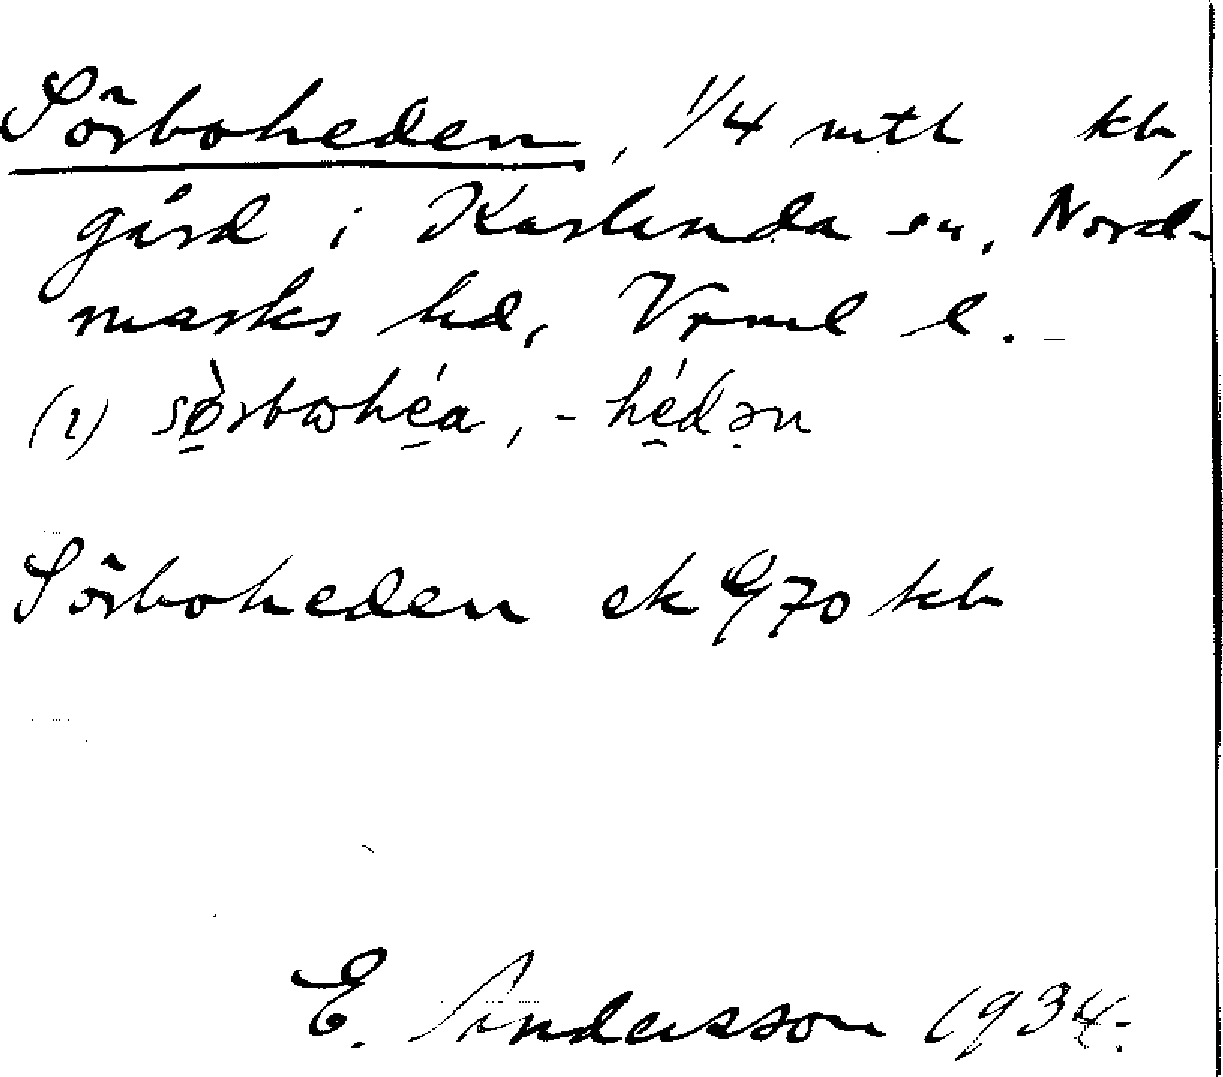 Sörboheden, 1/4 mtl kb,
gård i Karlanda sn, Nord-
marks hd, Vrml l. –
(1) sø̀rbωhéa, -hédən
Sörboheden ek G 70 kb
E. Andersson 1934.